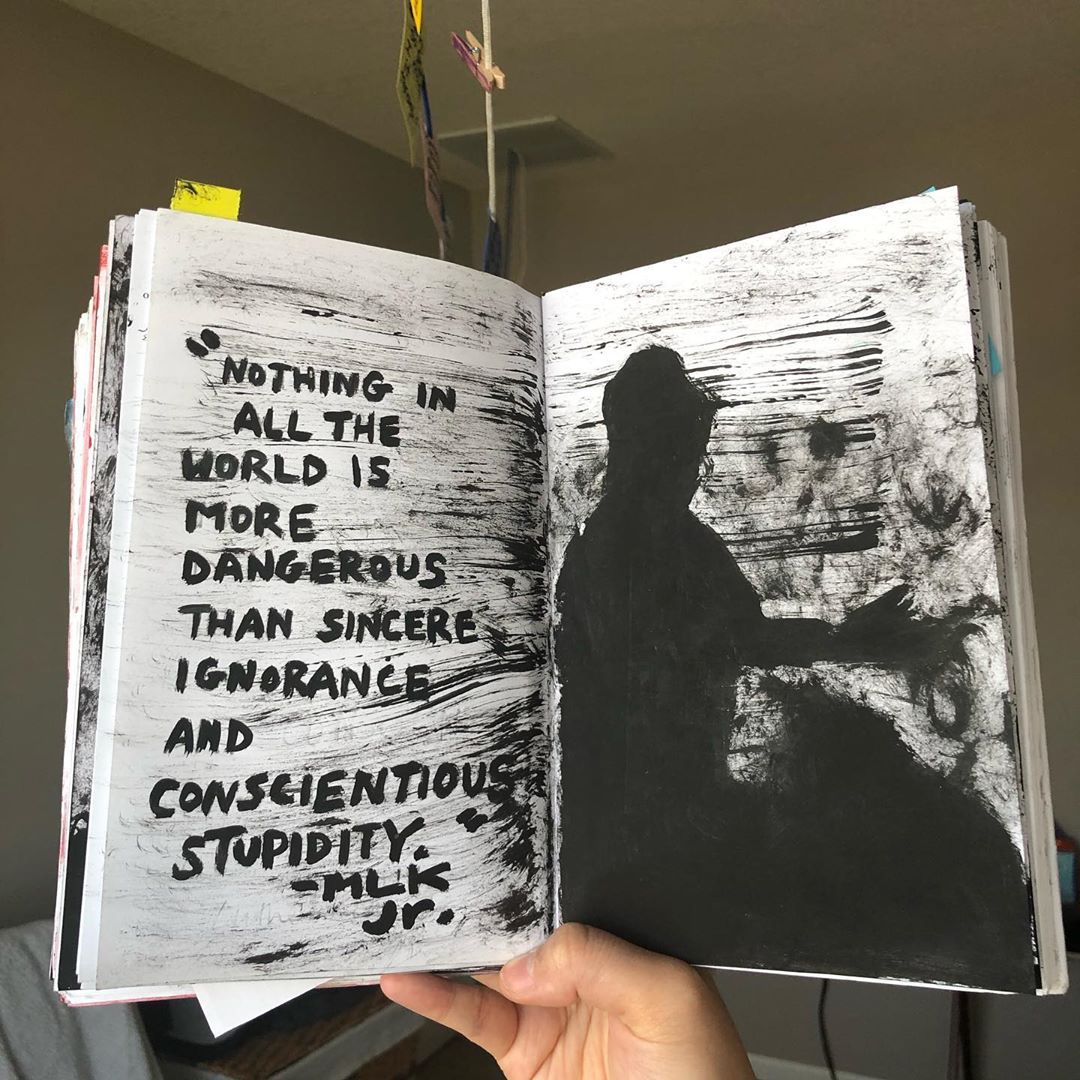 "NOTHING IN
ALL THE
WORLD IS
MORE
DANGEROUS
THAN SINCERE
IGNORANCE
AND
CONSCIENTIOUS
STUPIDITY."
-MLK
Jr.